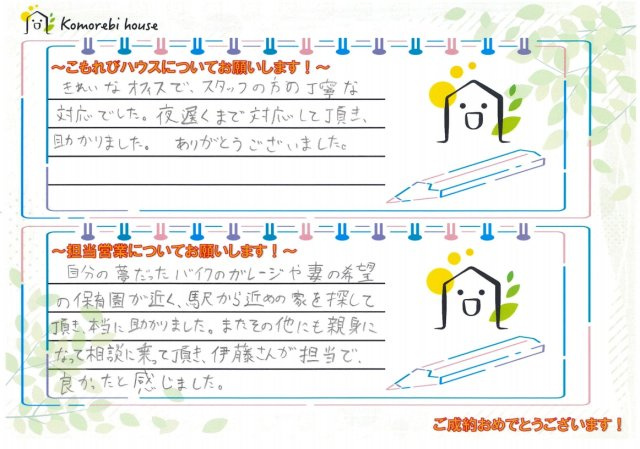 Komorebi house
～こもれびハウスについてお願いします！～
きれいなオフィスで、スタッフの方の丁寧な
対応でした。夜遅くまで対応して頂き、
助かりました。 ありがとうございました。
～担当営業についてお願いします！～
自分の夢だったバイクのガレージや妻の希望
の保育園が近く、駅から近めの家を探して
頂き、本当に助かりました。またその他にも親身に
なって相談に乗って頂き、伊藤さんが担当で、
良かったと感じました。
ご成約おめでとうございます！